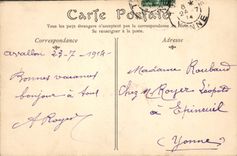 Carte Postale
Tous les pays étrangers n'acceptent pas la correspondance au recto.
Se renseigner à la poste.
Correspondance
Adresse
YONNE
Avallon 23-7-1914
Bonnes vacances
bonjour à tous
A Royer
Madame Roubaud
Chez Mr Royer Léopold
à Epineuil
Yonne